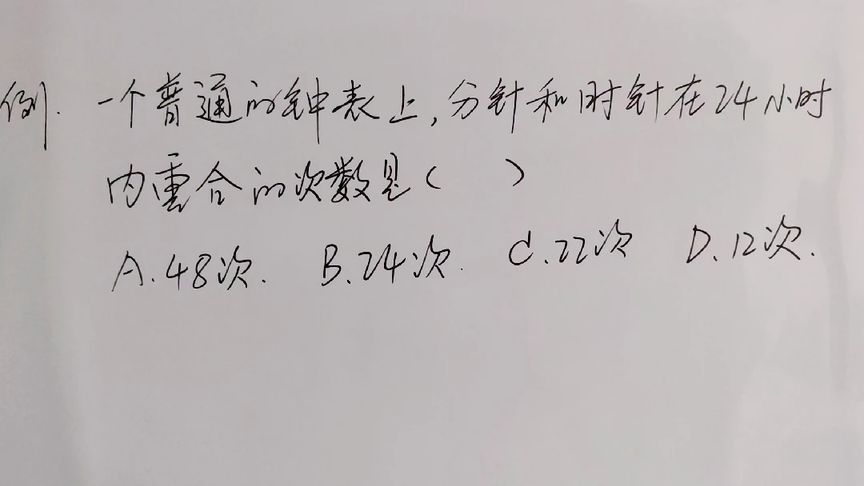 例. 一个普通的钟表上,分针和时针在24小时
内重合的次数是( )
A.48次. B.24次. C.22次 D.12次.